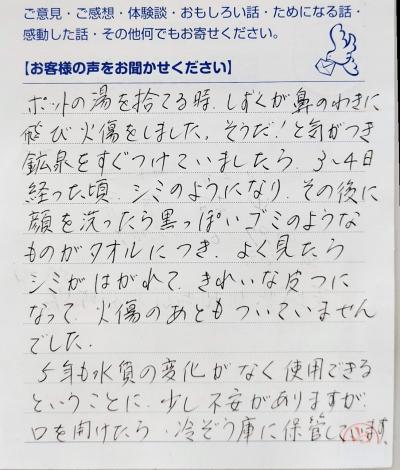 ご意見・ご感想・体験談・おもしろい話・ためになる話・
感動した話・その他何でもお寄せください。
【お客様の声をお聞かせください】
ポットの湯を捨てる時、しずくが鼻のわきに
飛び火傷をしました。そうだ！と気がつき
鉱泉をすぐつけていましたら、3〜4日
経った頃、シミのようになり、その後に
顔を洗ったら黒っぽいゴミのような
ものがタオルにつき、よく見たら
シミがはがれて、きれいな皮フに
なって、火傷のあともついていません
でした。
5年も水質の変化がなく使用できる
ということに、少し不安がありますが、
口を開けたら、冷ぞう庫に保管しています。